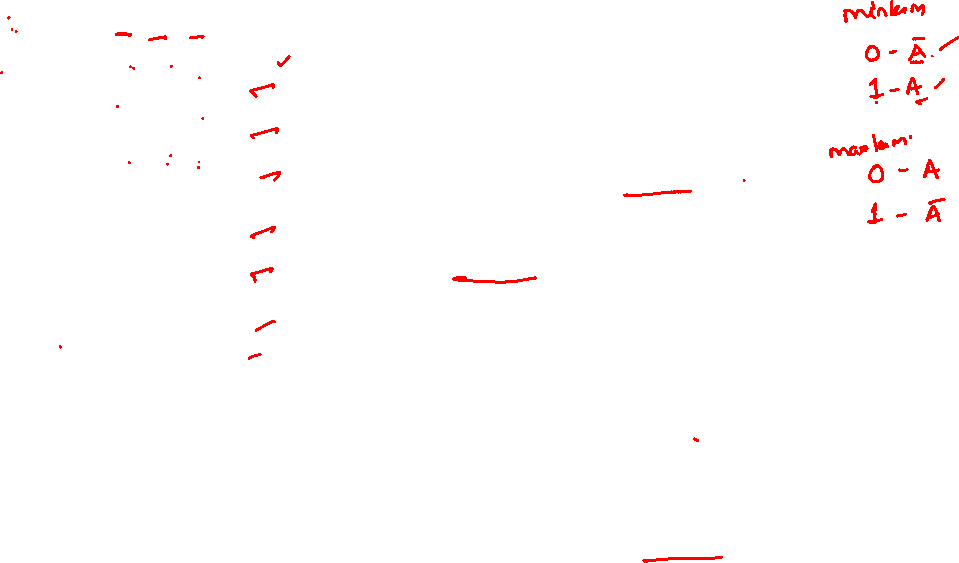 minterm
0 - A̅
1 - A
maxterm
0 - A
1 - A̅